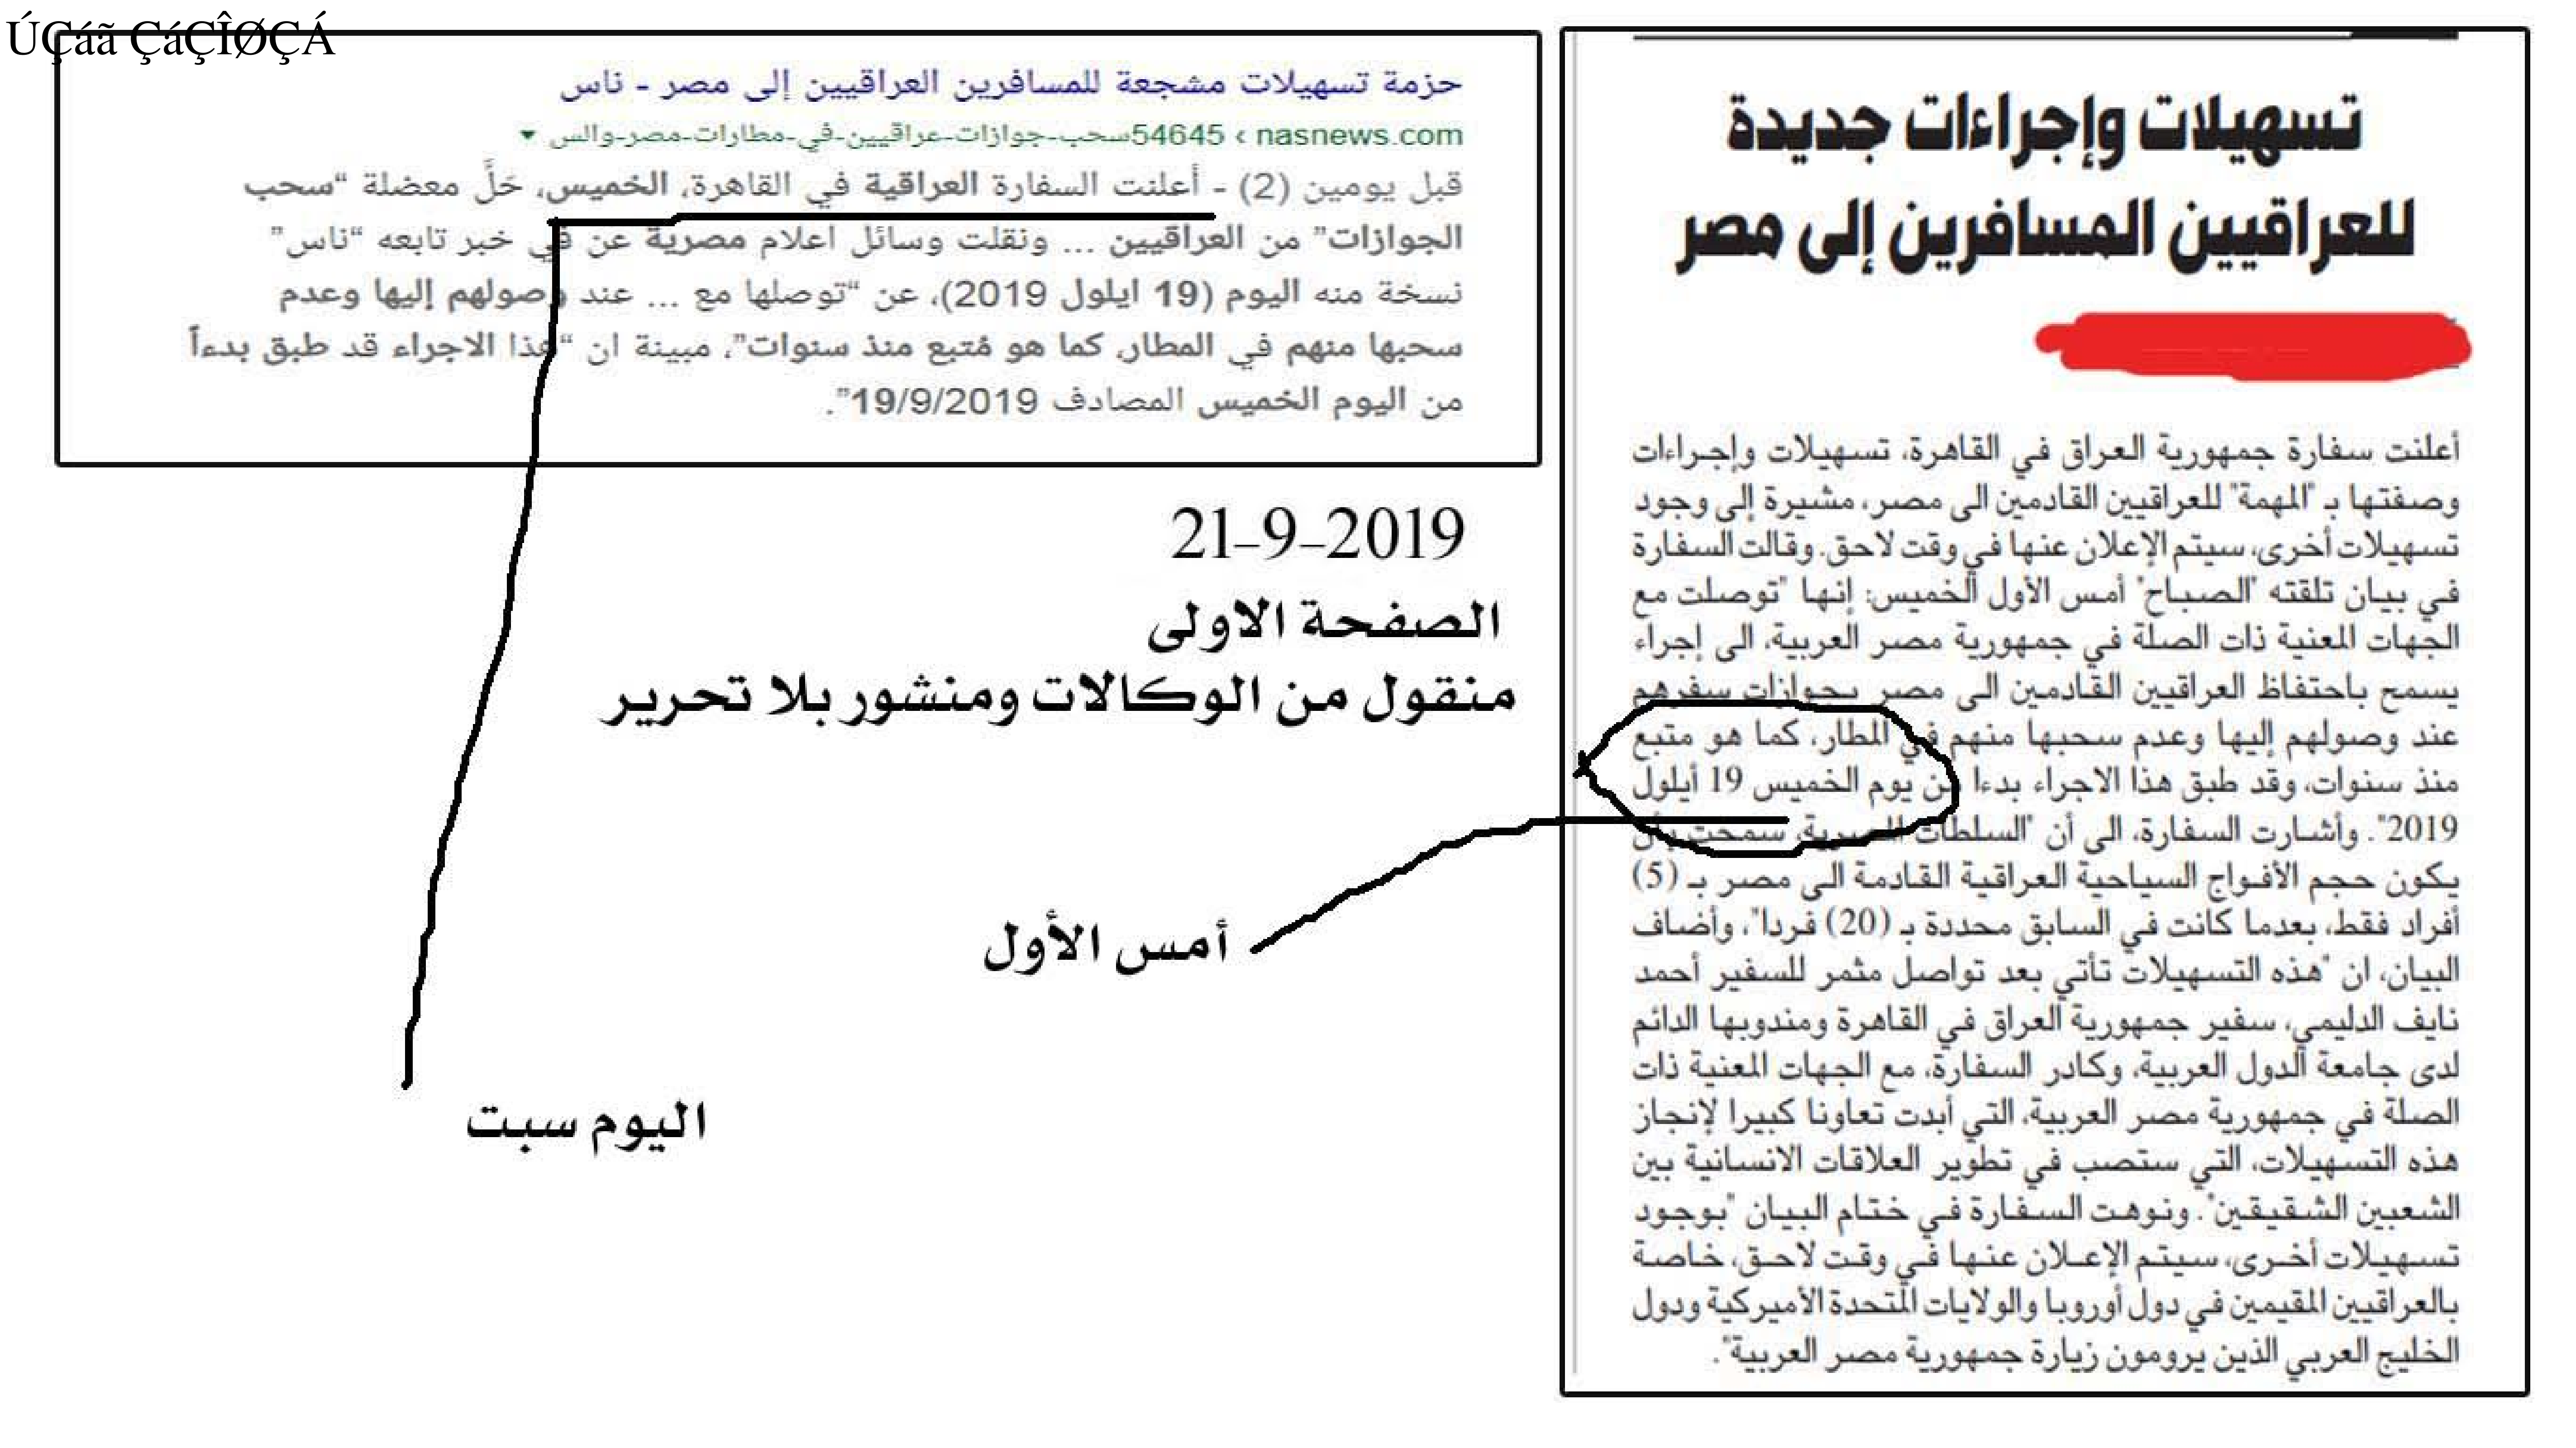 ÚÇáã ÇáÇÎØÇÁ
حزمة تسهيلات مشجعة للمسافرين العراقيين إلى مصر - ناس
nasnews.com › 54645سحب-جوازات-عراقيين-في-مطارات-مصر-والس
قبل يومين (2) - أعلنت السفارة العراقية في القاهرة، الخميس، حَلَّ معضلة “سحب
الجوازات” من العراقيين ... ونقلت وسائل اعلام مصرية عن في خبر تابعه “ناس”
نسخة منه اليوم (19 ايلول 2019)، عن “توصلها مع ... عند وصولهم إليها وعدم
سحبها منهم في المطار، كما هو مُتبع منذ سنوات”، مبينة ان “هذا الاجراء قد طبق بدءاً
من اليوم الخميس المصادف 19/9/2019”.
21-9-2019
الصفحة الاولى
منقول من الوكالات ومنشور بلا تحرير
أمس الأول
اليوم سبت
تسهيلات وإجراءات جديدة
للعراقيين المسافرين إلى مصر
أعلنت سفارة جمهورية العراق في القاهرة، تسهيلات وإجراءات
وصفتها بـ "المهمة" للعراقيين القادمين الى مصر، مشيرة إلى وجود
تسهيلات أخرى، سيتم الإعلان عنها في وقت لاحق. وقالت السفارة
في بيان تلقته "الصباح" أمس الأول الخميس: إنها "توصلت مع
الجهات المعنية ذات الصلة في جمهورية مصر العربية، الى إجراء
يسمح باحتفاظ العراقيين القادمين الى مصر بجوازات سفرهم
عند وصولهم إليها وعدم سحبها منهم في المطار، كما هو متبع
منذ سنوات، وقد طبق هذا الاجراء بدءا من يوم الخميس 19 أيلول
2019". وأشارت السفارة، الى أن "السلطات المصرية، سمحت بأن
يكون حجم الأفواج السياحية العراقية القادمة الى مصر بـ (5)
أفراد فقط، بعدما كانت في السابق محددة بـ (20) فردا"، وأضاف
البيان، ان "هذه التسهيلات تأتي بعد تواصل مثمر للسفير أحمد
نايف الدليمي، سفير جمهورية العراق في القاهرة ومندوبها الدائم
لدى جامعة الدول العربية، وكادر السفارة، مع الجهات المعنية ذات
الصلة في جمهورية مصر العربية، التي أبدت تعاونا كبيرا لإنجاز
هذه التسهيلات، التي ستصب في تطوير العلاقات الانسانية بين
الشعبين الشقيقين". ونوهت السفارة في ختام البيان "بوجود
تسهيلات أخرى، سيتم الإعلان عنها في وقت لاحق، خاصة
بالعراقيين المقيمين في دول أوروبا والولايات المتحدة الأميركية ودول
الخليج العربي الذين يرومون زيارة جمهورية مصر العربية".